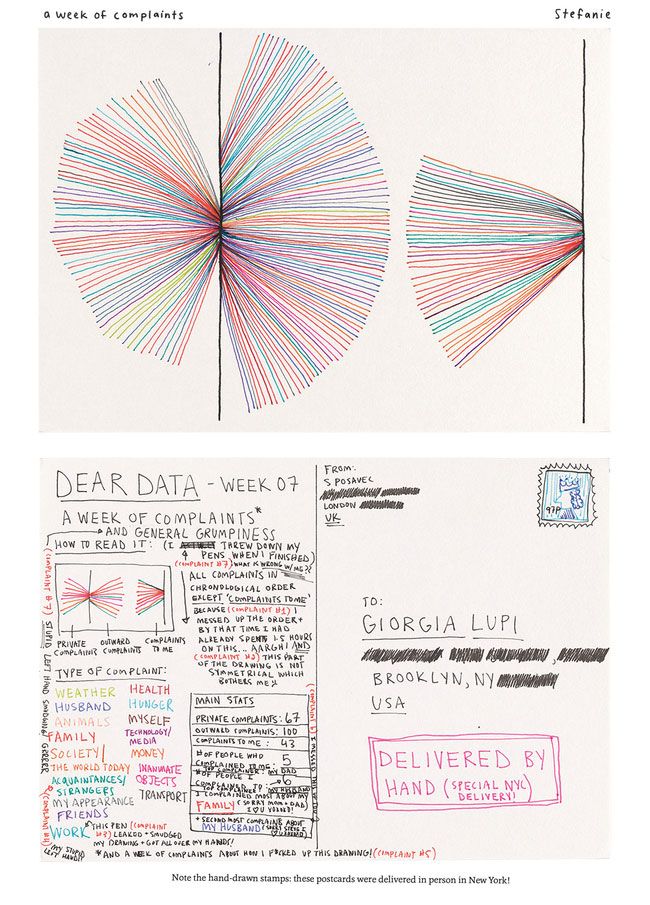 a week of complaints
Stefanie
DEAR DATA - WEEK 07
A WEEK OF COMPLAINTS*
AND GENERAL GRUMPINESS
HOW TO READ IT:
(I THREW DOWN MY
PENS WHEN I FINISHED)
(COMPLAINT #7) WHAT IS WRONG W/ME??
ALL COMPLAINTS IN
CHRONOLOGICAL ORDER
EXCEPT 'COMPLAINTS TO ME'
BECAUSE (COMPLAINT #1) I
MESSED UP THE ORDER +
BY THAT TIME I HAD
ALREADY SPENT 1.5 HOURS
ON THIS... AARGH! AND
(COMPLAINT #2) THIS PART
OF THE DRAWING IS NOT
SYMMETRICAL WHICH
BOTHERS ME
PRIVATE COMPLAINTS
OUTWARD COMPLAINTS
COMPLAINTS TO ME
STUPID LEFT HAND
TYPE OF COMPLAINT:
WEATHER
HUSBAND
ANIMALS
FAMILY
SOCIETY/
THE WORLD TODAY
ACQUAINTANCES/
STRANGERS
MY APPEARANCE
FRIENDS
WORK
HEALTH
HUNGER
MYSELF
TECHNOLOGY/
MEDIA
MONEY
INANIMATE
OBJECTS
TRANSPORT
MAIN STATS
PRIVATE COMPLAINTS: 67
OUTWARD COMPLAINTS: 100
COMPLAINTS TO ME: 43
# OF PEOPLE WHO
COMPLAINED TO ME: 5
TOP COMPLAINER: MY DAD
# OF PEOPLE I
COMPLAINED TO: 6
TOP COMPLAINED MY HUSBAND
I COMPLAINED MOST ABOUT MY
FAMILY (SORRY MOM + DAD)
SECOND MOST COMPLAINED ABOUT
MY HUSBAND
*THIS PEN (COMPLAINT
#3) LEAKED + SMUDGED
MY DRAWING + GOT ALL OVER MY HANDS!
(MY STUPID
LEFT HAND!!)
*AND A WEEK OF COMPLAINTS ABOUT HOW I F*CKED UP THIS DRAWING! (COMPLAINT #5)
FROM:
S POSAVEC
LONDON
UK
97P
TO:
GIORGIA LUPI
BROOKLYN, NY
USA
DELIVERED BY
HAND (SPECIAL NYC
DELIVERY!)
Note the hand-drawn stamps: these postcards were delivered in person in New York!